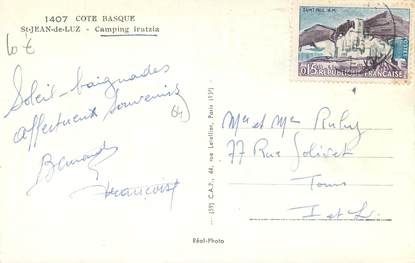 1407 COTE BASQUE
St-JEAN-de-LUZ - Camping iratzia
10 €
Soleil - baignades
affectueux souvenirs
64)
Bernard
Françoise
(59) C.A.P., 44, rue Letellier, Paris (15e)
Réal-Photo
SAINT PAUL
0,15 REPUBLIQUE FRANÇAISE
POSTES
Mr et Mme
77 Rue
Tours
I et L